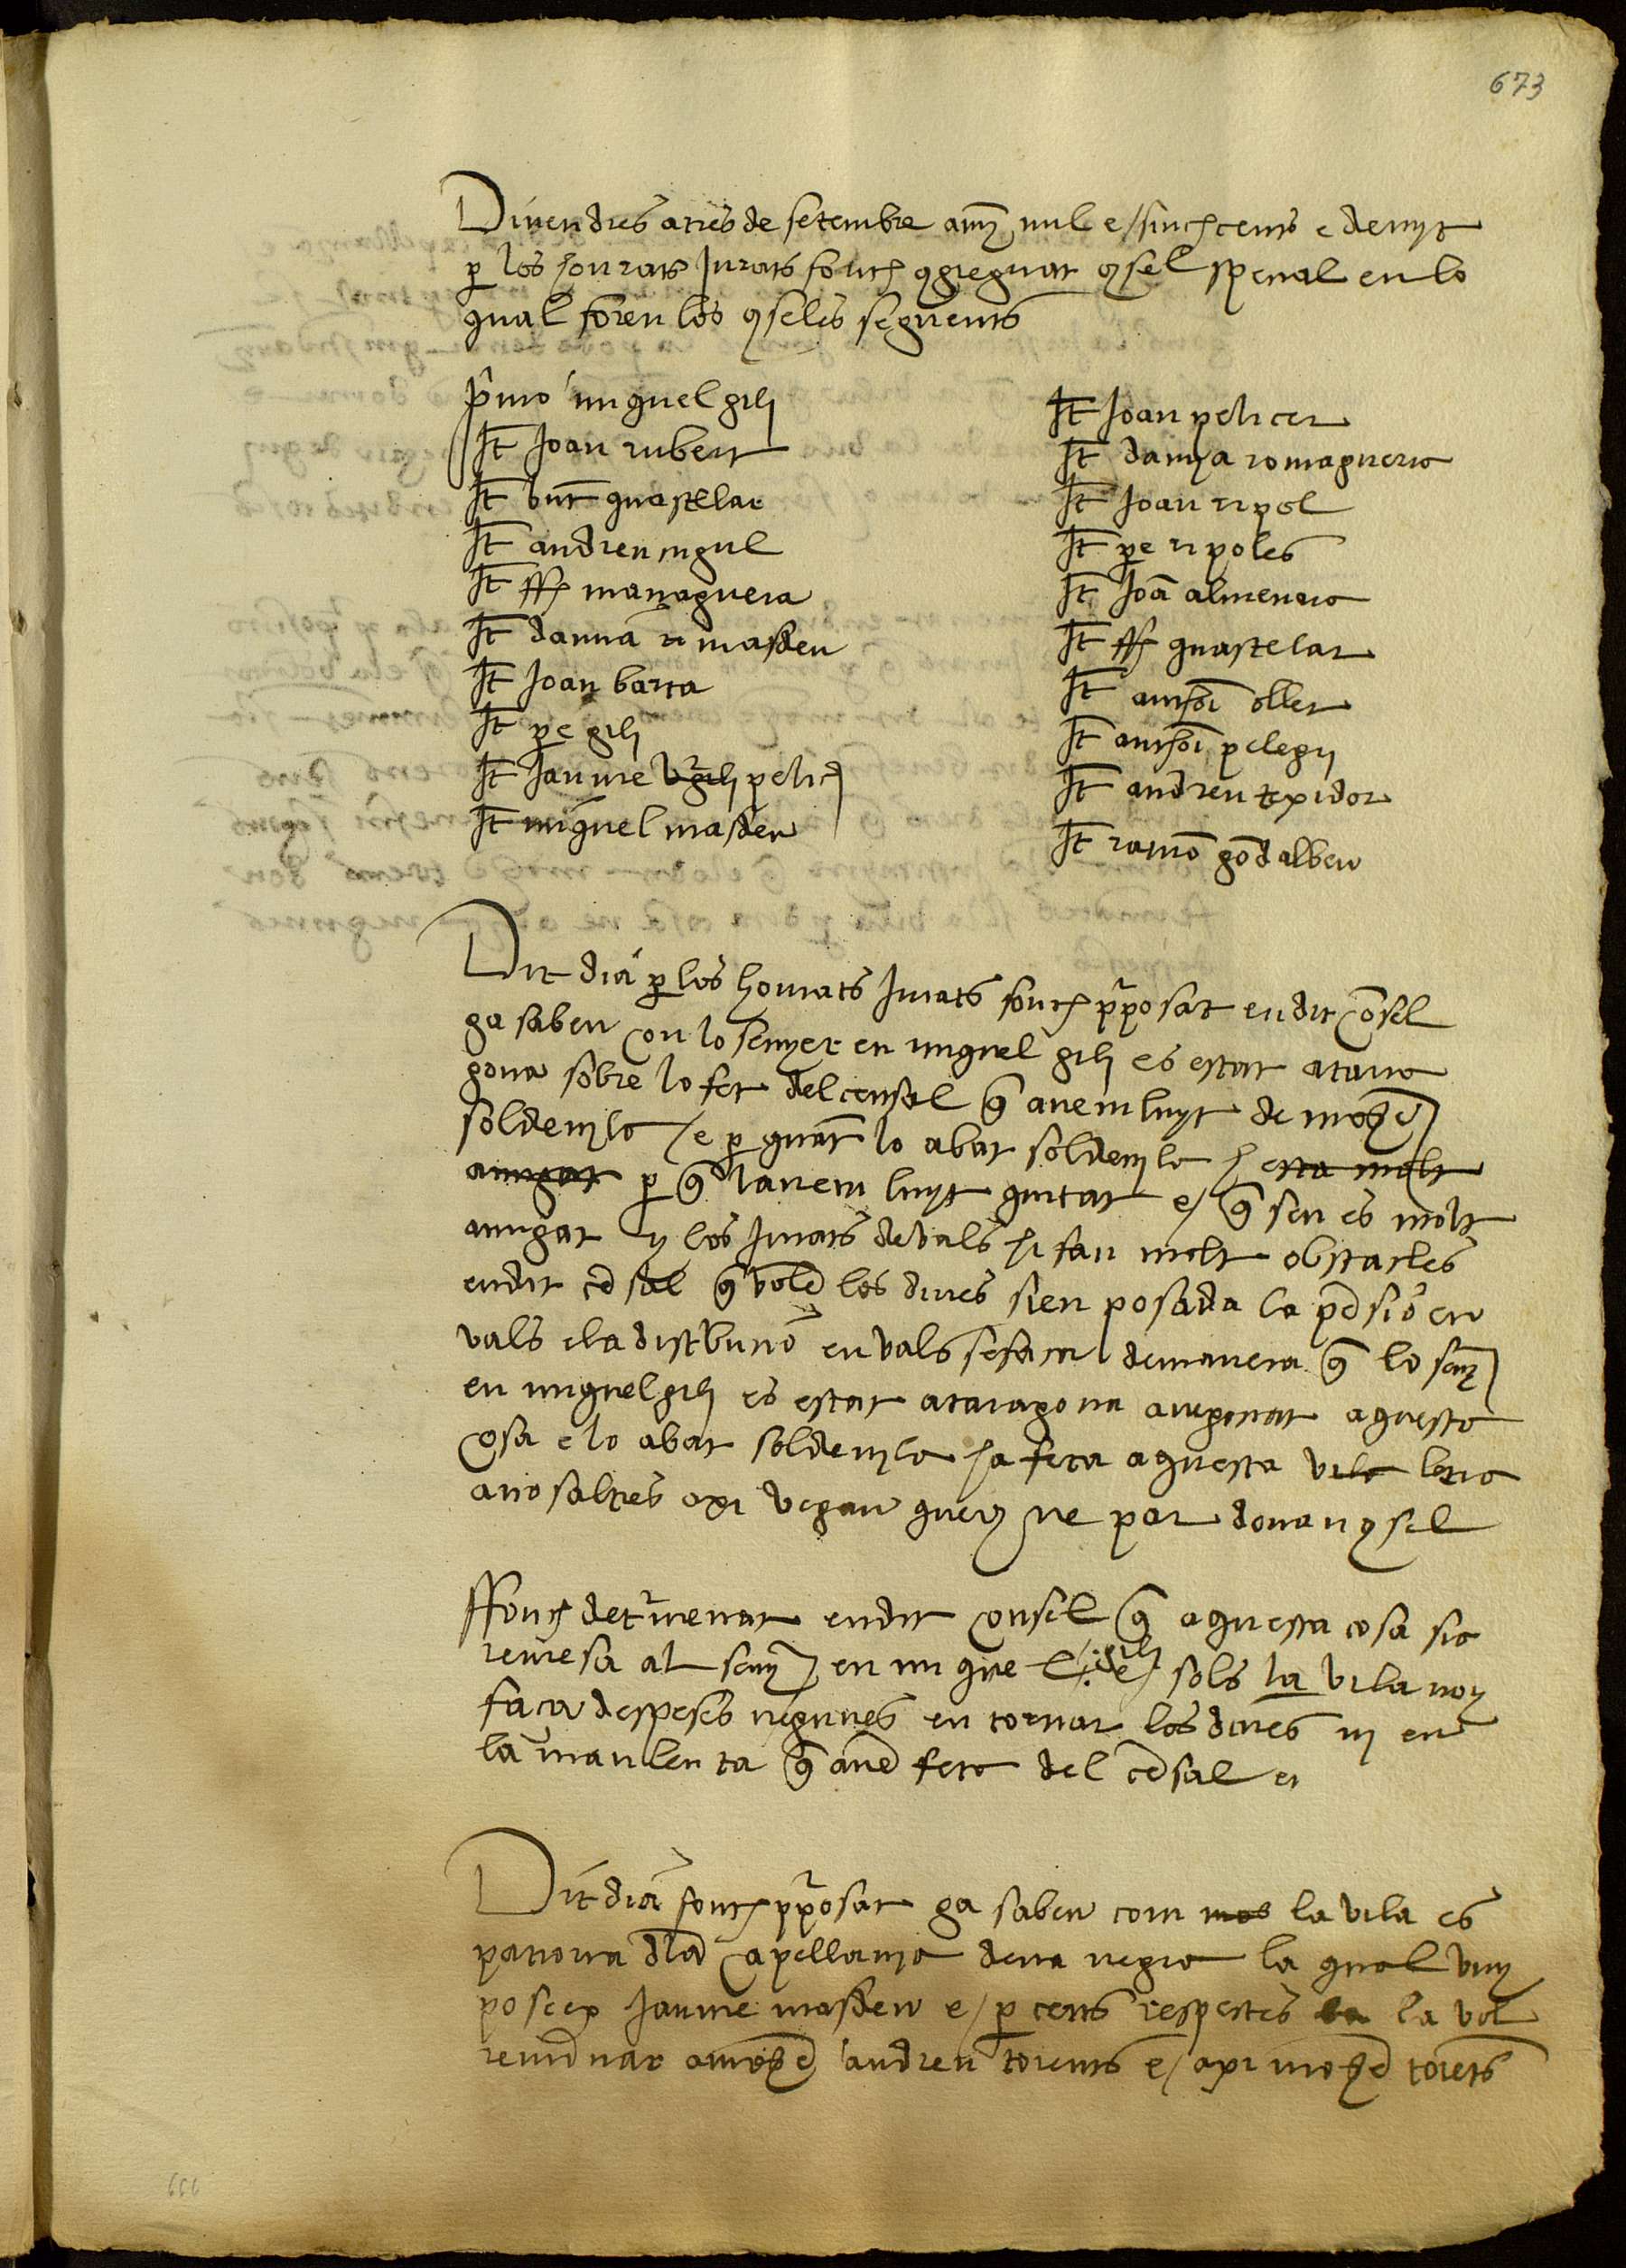 673
Divendres a tres de setembre any mil e sinch cents e devuyt
per los honrats Jurats fonch congreguat consel special en lo
qual foren los conseles seguents
primo miquel gili
It Joan rubert
It bnt guastelar
It andreu ingul
It ff managuera
It damia masdeu
It Joan barta
It pere gili
It Jaume pelicer
It miquel masdeu
It Joan pelicer
It damya romaguera
It Joan ripol
It pere ripoles
It Joa almenara
It ff guastelar
It anthoni oller
It anthoni pelegri
It andreu texidor
It ramo godalbeu
Dit dia per los honrats Jurats fonch proposat en dit consel
ço a saber con lo senyer en miquel gili es estat a tarra
gona sobre lo fet del censal que avem luyt de mossen
soldevila e per quant lo abat soldevila h esta molt
anugat per que lavem luyt quitat e que sen es molt
anugat y los Jurats de vals hi fan molt obstacles
en dit censal que volen los dines sien posada la pensio en
vals e la distribucio en vals se faça de manera que lo seny
en miquel gili es estat a taragona aveginat aguesta
cosa e lo abat soldevila ha feta aguesta vila letra
a nosaltres axi vegau quen ne par donau consel
ffonch determenat en dit consel que aguesta cosa sia
remesa al seny en miquel gili e sols la vila noy
faça despeses negunes en tornar los dines ni en
la manlenta que avem feta del censal
Dit dia fonch proposat ço a saber com mos la vila es
patrona dela capellania dena negra la qual vuy
poseex Jaume masdeu e per certs respectes la vol
renunciar a mossen andreu torents e axi mossen torets